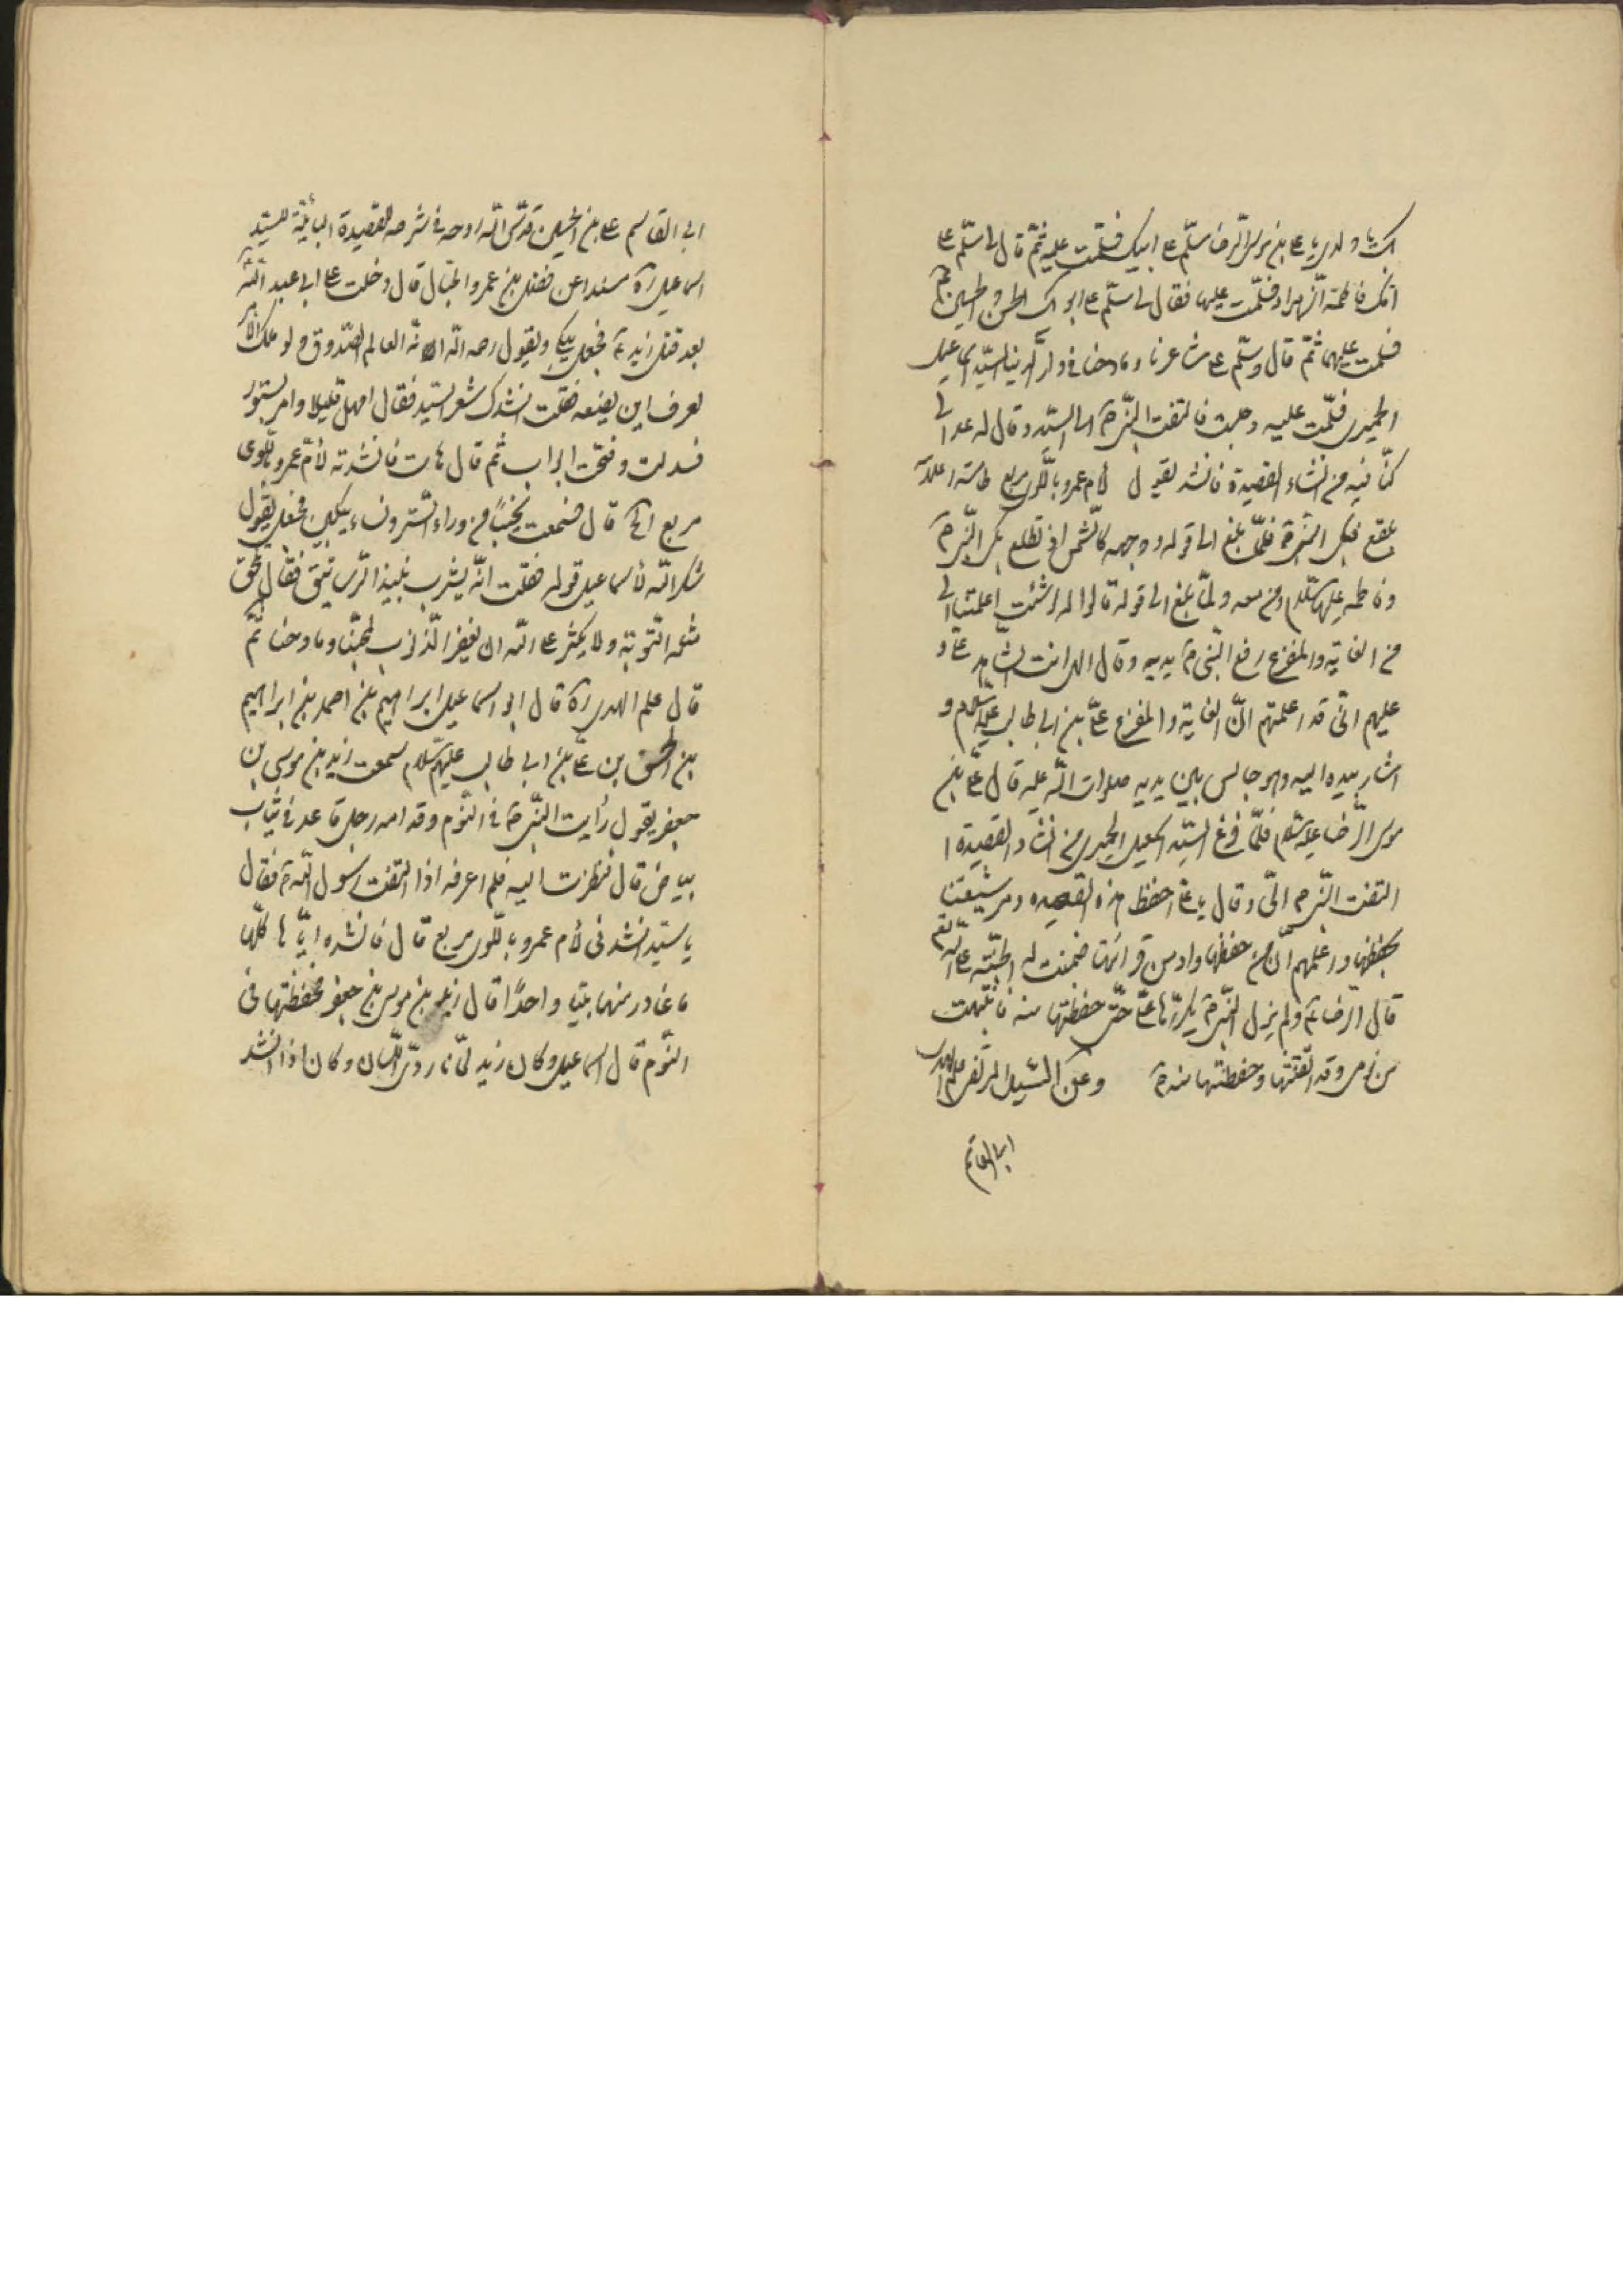 بك يا ولدى يا على بن موسى الرضا سلّم على ابيك فسلّمت عليه ثمّ قال لى سلّم على
امّك فاطمة الزهراء فسلّمت عليها فقال لى سلّم على ابويك الحسن والحسين ع
فسلمت عليهما ثمّ قال وسلّم على شاعرنا ومادحنا فى دار الدنيا السيّد اسماعيل
الحميرى فسلّمت عليه وجلست فالتفت النبى ص الى السيّد وقال له عد الى ما
كنّا فيه من انشاء القصيدة فانشد يقول لأم عمرو باللوى مربع طامسة اعلامه
بلقع فبكى النبى ص فلمّا بلغ الى قوله ووجهه كالشمس اذ تطلع بكى النبى ص
وفاطمة عليها السّلام ومن معه ولمّا بلغ الى قوله قالوا له لو شئت اعلمتنا الى
من الغاية والمفزع رفع النبى ص يديه وقال الهى انت الشاهد علىّ و
عليهم انّى قد اعلمتهم انّ الغاية والمفزع علىّ بن ابى طالب عليه السلام و
اشار بيده اليه وهو جالس بين يديه صلوات الله عليه قال علىّ بن
موسى الرّضا عليه السّلم فلمّا فرغ السيّد اسمعيل الحميرى من انشاد القصيدة
التفت النّبى ص الىّ وقال يا علىّ احفظ هذه القصيده ومر شيعتنا
بحفظها واعلمهم انّ من حفظها وادمن قرائتها ضمنت له الجنّة على الله تع
قال الرضا ع ولم يزل النّبى ص يكرّرها علىّ حتّى حفظتها منه فانتبهت
من نومى وقد اتقنتها وحفظتها منه ص وعن السيد المرتضى علم الهدى
ابى القاسم
ابى القاسم على بن الحسين قدّس الله روحه فى شرحه للقصيدة البائيّة للسيّد
اسماعيل ره مسندا عن فضيل بن عمرو الحبّال قال دخلت على ابى عبد الله ع
بعد قتل زيد ع فجعل يبكى ويقول رحمه الله انّه العالم الصّدوق ولو ملك الأمر
لعرف اين يضعه فقلت انشدك شعر السيّد فقال امهل قليلا وامر بستور
فسدلت وفتحت ابواب ثم قال هات فانشدته لأمّ عمرو باللوى
مربع الخ قال فسمعت نحيبًا من وراء السّتر ونساء يبكين فجعل يقول
شكر الله لأسماعيل قوله فقلت انّه يشرب نبيذ الرّساتيق فقال يلحق
مثله التّوبة ولا يكثر على الله ان يغفر الذّنوب لمحبّنا ومادحنا ثمّ
قال علم الهدى ره قال ابو اسماعيل ابراهيم بن احمد بن ابراهيم
بن الحسن بن على بن ابى طالب عليهم السّلام سمعت زيد بن موسى بن
جعفر يقول رأيت النّبى ص فى النّوم وقدامه رجل قاعد فى ثياب
بياض قال فنظرت اليه فلم اعرفه اذا التفت رسول الله ص فقال
يا سيّد انشدنى لأم عمرو باللوى مربع قال فانشده ايّاها كلّها
ما غادر منها بيتا واحدًا قال زيد بن موسى بن جعفر فحفظتها فى
النّوم قال اسماعيل وكان زيد لحّانا ردىّ اللّسان وكان اذا انشد